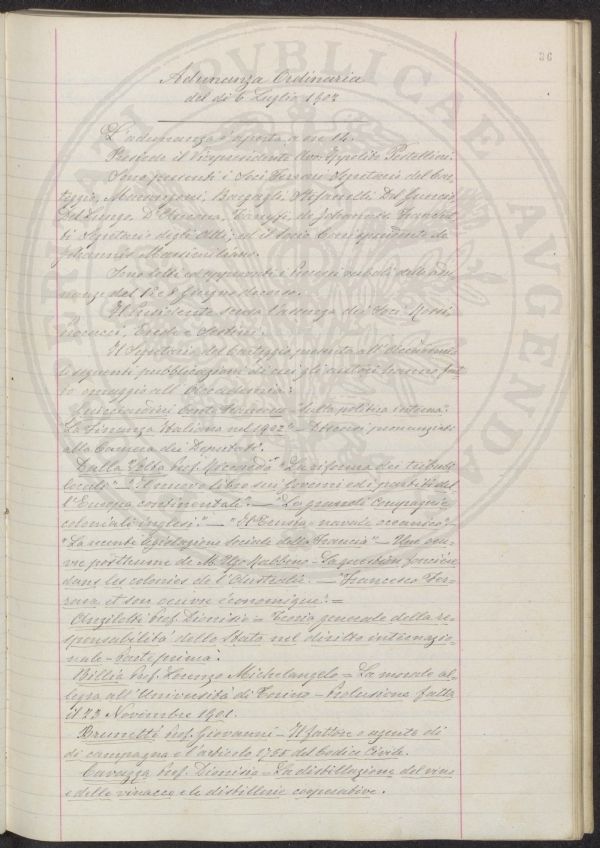 36
Adunanza Ordinaria
del dì 6 Luglio 1902
L'adunanza è aperta a ore 14.
Presiede il Vicepresidente Avv. Ippolito Pestellini.
Sono presenti i Soci Ferrari Segretario del Car-
teggio, Marangoni, Bargagli, Stefanelli, Del Guercio,
Del Lungo, D'Ancona, de Johannis,
ti Segretario degli Atti; ed il Socio Corrispondente de
Johannis Marsimiliano.
Sono letti ed approvati i Processi verbali delle adu-
nanze del 1º e 8 Giugno decorso.
Il Presidente scusa l'assenza dei Soci
Niccoli, e Sestini.
Il Segretario del Carteggio presenta all'Accademia
le seguenti pubblicazioni di cui gli autori hanno fat-
to omaggio all'Accademia:
Guicciardini Conte Francesco = Sulla politica interna.
"La Finanza Italiana nel 1902" - Discorsi pronunziati
alla Camera dei Deputati.
Dalla Volta Prof. Riccardo "La riforma dei tributi
locali" - Il nuovo libro sui Governi ed i partiti del
l'Europa continentale." - "Le grandi Compagnie
coloniali inglesi." - "Il Censo navale oceanico" -
"La recente legislazione sociale della Francia" - Une oeu-
vre posthume de M. Ugo Rabbeno - La question foncière
dans les colonies de l'Australie. - "Francesco Fer-
rara et son oeuvre économique". =
Anzilotti Prof. Dionisio = Teoria generale della re-
sponsabilità dello Stato nel diritto internazio-
nale - Parte prima.
Billia Prof. Lorenzo Michelangelo = La morale al-
legra all'Università di Torino - Prolusione fatta
il 23 Novembre 1901.
Brunetti Prof. Giovanni - Il fattore o agente di
di campagna e l'articolo 1755 del Codice Civile.
Cavazza Prof. Dionisio = La distillazione del vino
e delle vinacce e le distillerie cooperative.